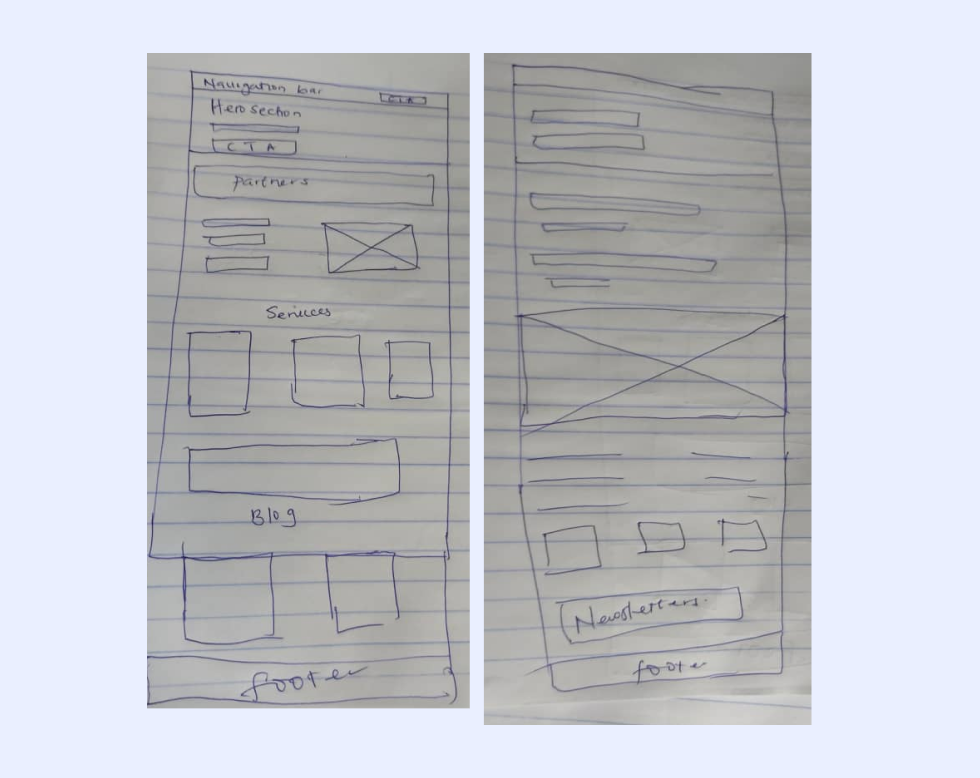 Navigation bar
CTA
Hero section
CTA
Partners
Services
Blog
footer
Newsletters.
footer